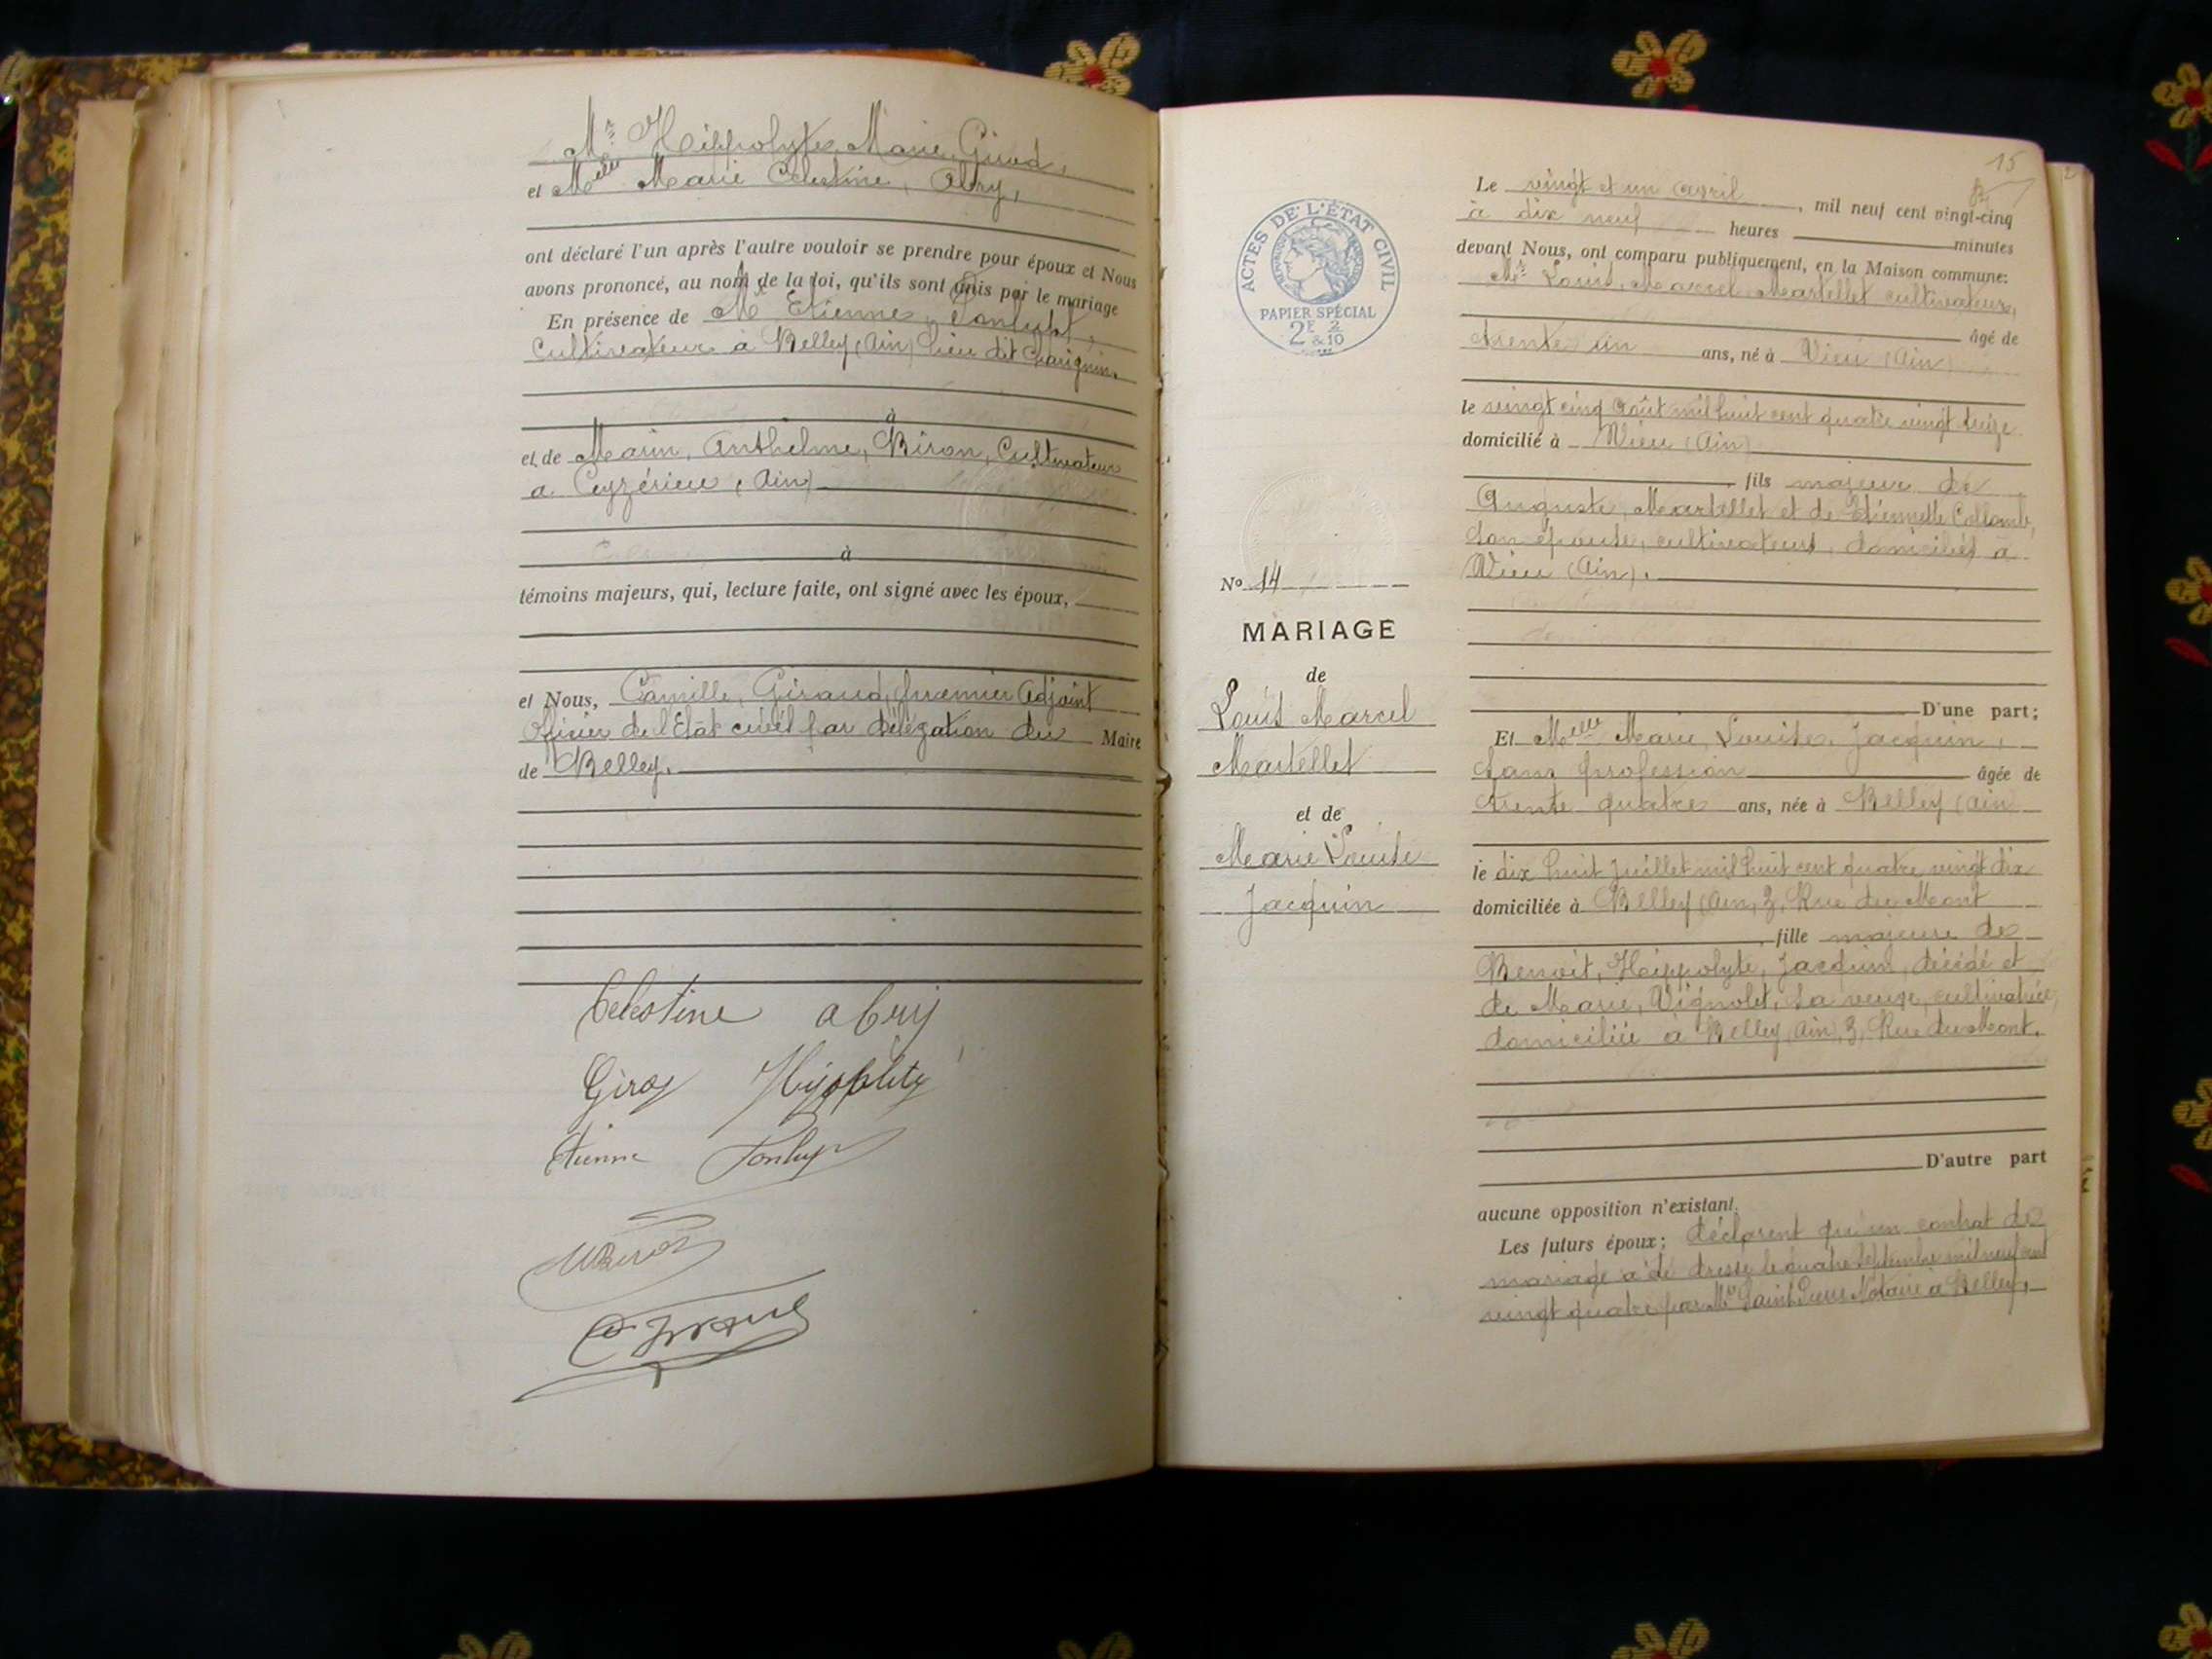 Mr Hippolyte, Marie, Girod,
et Melle Marie Célestine, Abry,
ont déclaré l'un après l'autre vouloir se prendre pour époux et Nous
avons prononcé, au nom de la loi, qu'ils sont unis par le mariage
En présence de Mr Etienne,
Cultivateur à Belley (Ain) lieu dit Charignin.
à
et de Marin, Anthelme, Biron, Cultivateur
a Ceyzérieu (Ain)
à
témoins majeurs, qui, lecture faite, ont signé avec les époux,
et Nous, Camille, Giraud, premier Adjoint
Officier de l'Etat civil par délégation du Maire
de Belley.
Celestine abry
Girod Hyppolite
Etienne
MBiron
C. Giraud
15
Le vingt et un avril, mil neuf cent vingt-cinq
à dix neuf heures minutes
devant Nous, ont comparu publiquement, en la Maison commune:
Mr Louis, Marcel, Martellet cultivateur,
âgé de
trente un ans, né à Vieu (Ain)
le vingt cinq Août mil huit cent quatre vingt treize
domicilié à Vieu (Ain)
fils majeur de
Auguste, Martellet et de Etiennette Collomb,
son épouse, cultivateurs, domiciliés à
Vieu (Ain).
D'une part;
Et Melle Marie, Louise, Jacquin,
sans profession âgée de
trente quatre ans, née à Belley (Ain)
le dix huit Juillet mil huit cent quatre vingt dix
domiciliée à Belley (Ain, 3, Rue du Mont
fille majeure de
Benoit, Hippolyte, Jacquin, décédé et
de Marie, Vignolet, sa veuve, cultivatrice,
domiciliée à Belley (Ain), 3, Rue du Mont.
D'autre part
aucune opposition n'existant.
Les futurs époux; déclarent qu'un contrat de
mariage a été dressé le quatre septembre mil neuf cent
vingt quatre par Me Saint Pierre Notaire à Belley,
ACTES DE L'ÉTAT CIVIL
PAPIER SPÉCIAL
2F 2/10
&
No 14
MARIAGE
de
Louis Marcel
Martellet
et de
Marie Louise
Jacquin